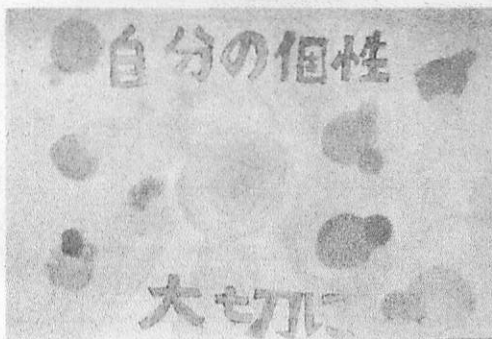 自分の個性
大切に